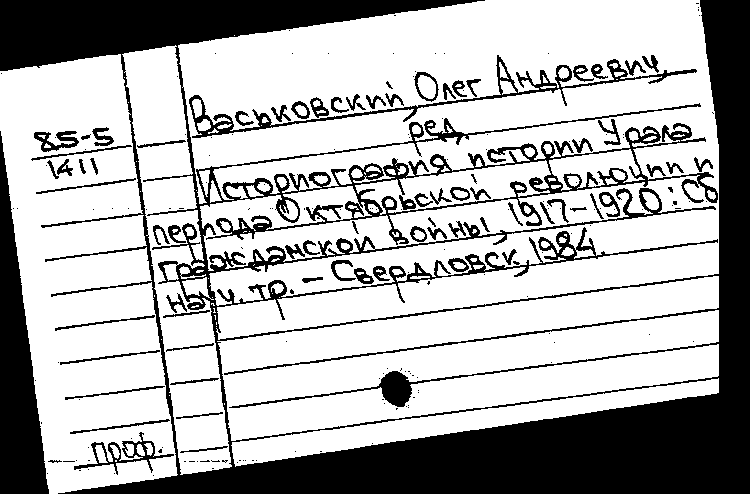 Васьковский, Олег Андреевич,
85-5
1411
ред.
Историография истории Урала
периода Октябрьской революции и
гражданской войны, 1917-1920: Сб
науч. тр. - Свердловск, 1984.
проф.